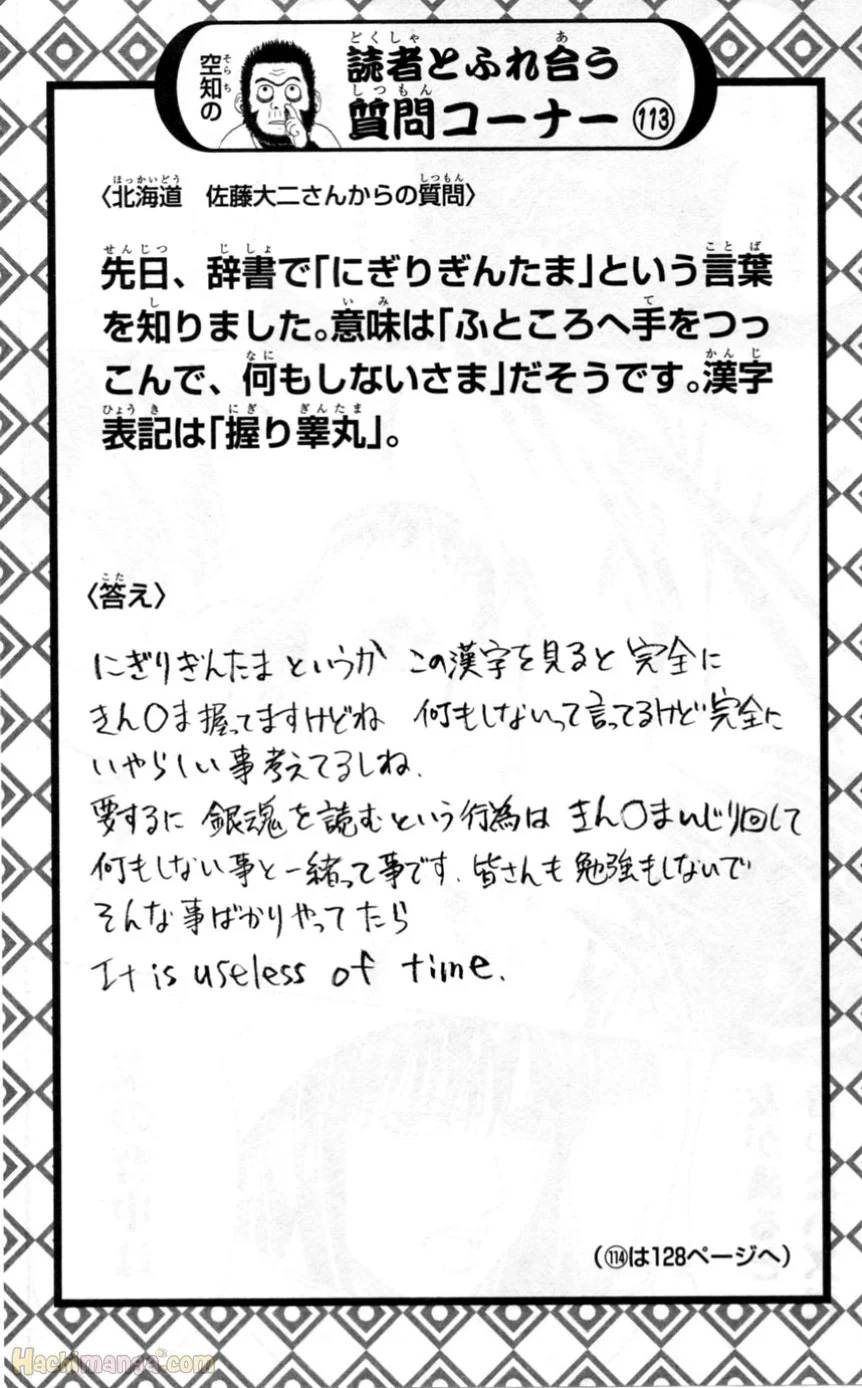 空知の
読者とふれ合う
質問コーナー113
〈北海道　佐藤大二さんからの質問〉
先日、辞書で「にぎりぎんたま」という言葉
を知りました。意味は「ふところへ手をつっ
こんで、何もしないさま」だそうです。漢字
表記は「握り睾丸」。
〈答え〉
にぎりぎんたま というか この漢字を見ると 完全に
きん○ま握ってますけどね　何もしないって言ってるけど完全に
いやらしい事考えてるしね.
要するに 銀魂を読むという行為は きん○まいじり回して
何もしない事と一緒って事です. 皆さんも勉強もしないで
そんな事ばかりやってたら
It is useless of time.
（114は128ページへ）
Hachimanga.com